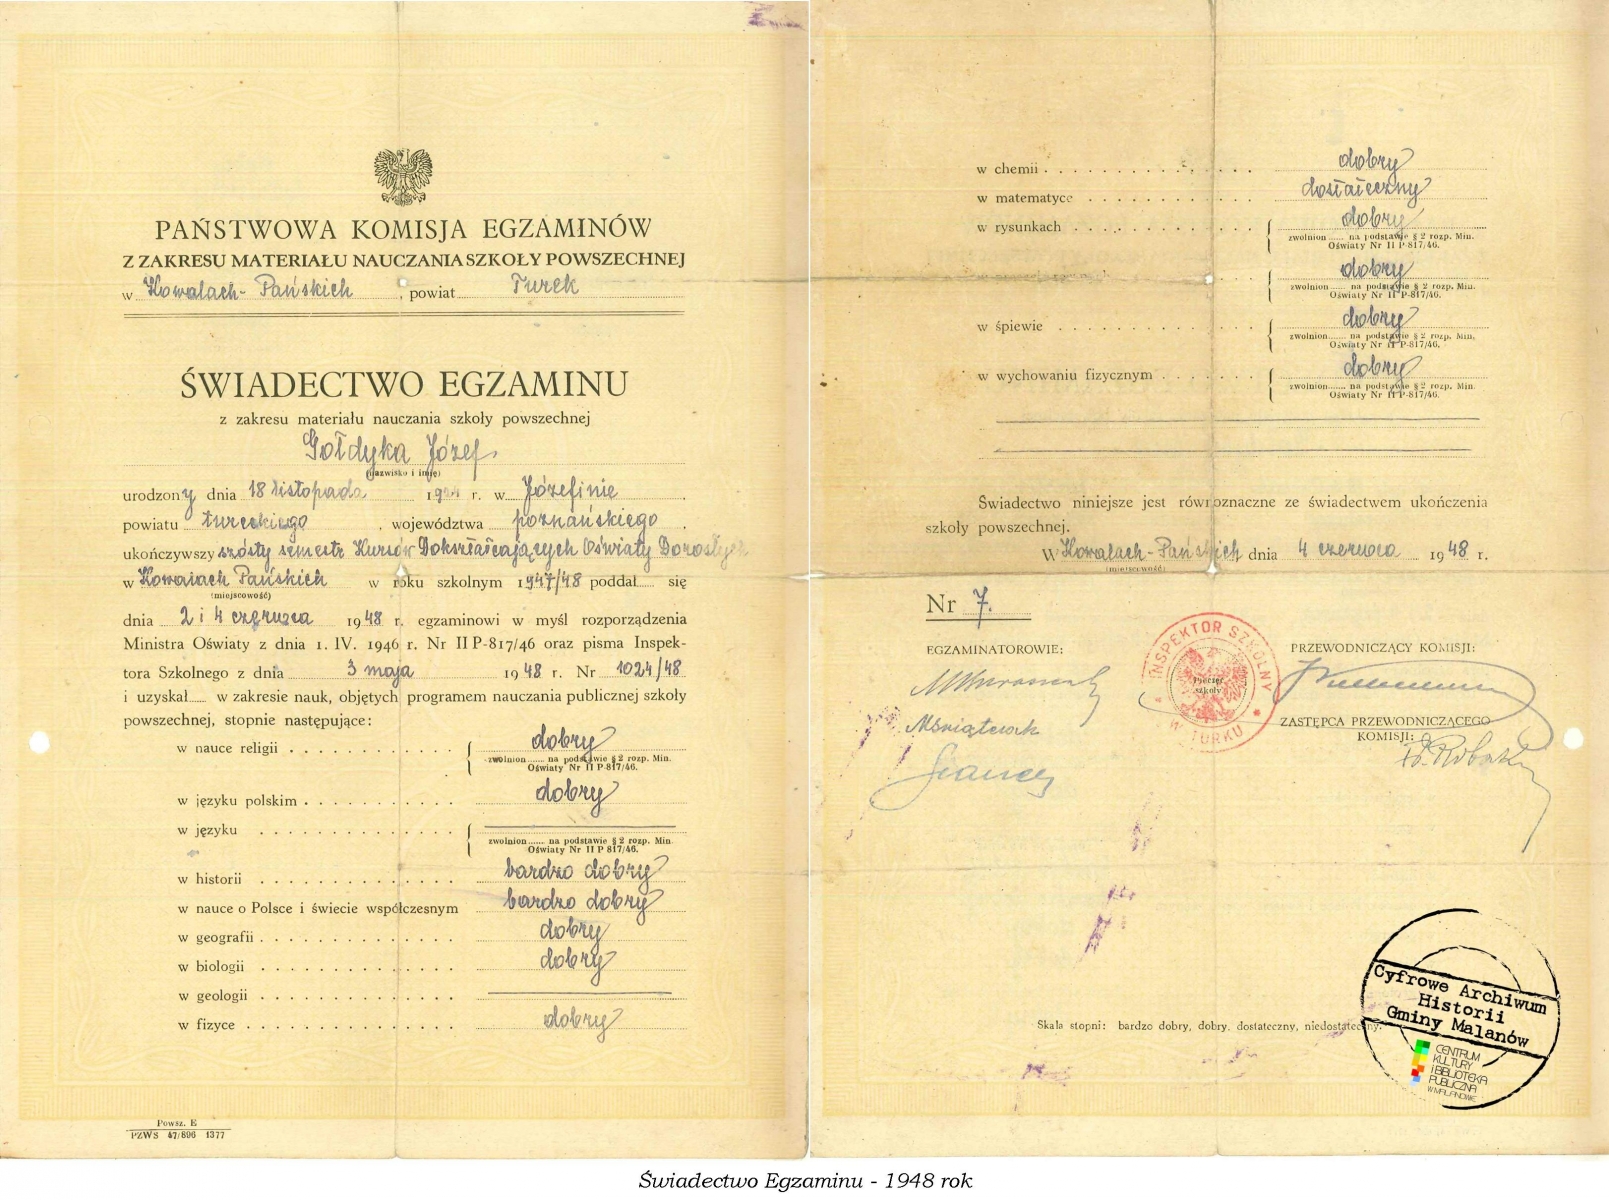 PAŃSTWOWA KOMISJA EGZAMINÓW
Z ZAKRESU MATERIAŁU NAUCZANIA SZKOŁY POWSZECHNEJ
w Kowalach-Pańskich, powiat Turek
ŚWIADECTWO EGZAMINU
z zakresu materiału nauczania szkoły powszechnej
Gołdyka Józef
(nazwisko i imię)
urodzony dnia 18 listopada r. w Józefinie
powiatu tureckiego, województwa poznańskiego
ukończywszy szósty semestr Kursów Dokształcających Oświaty Dorosłych
w Kowalach Pańskich w roku szkolnym 1947/48 poddał się
(miejscowość)
dnia 2 i 4 czerwca 1948 r. egzaminowi w myśl rozporządzenia
Ministra Oświaty z dnia 1. IV. 1946 r. Nr II P-817/46 oraz pisma Inspek-
tora Szkolnego z dnia 3 maja 1948 r. Nr 1024/48
i uzyskał w zakresie nauk, objętych programem nauczania publicznej szkoły
powszechnej, stopnie następujące:
w nauce religii dobry
zwolnion...... na podstawie § 2 rozp. Min.
Oświaty Nr II P 817/46.
w języku polskim dobry
w języku
zwolnion...... na podstawie § 2 rozp. Min.
Oświaty Nr II P 817/46.
w historii bardzo dobry
w nauce o Polsce i świecie współczesnym bardzo dobry
w geografii dobry
w biologii dobry
w geologii
w fizyce dobry
Powsz. E
PZWS 47/896 1377
w chemii dobry
w matematyce dostateczny
w rysunkach dobry
zwolnion...... na podstawie § 2 rozp. Min.
Oświaty Nr II P-817/46.
dobry
zwolnion...... na podstawie § 2 rozp. Min.
Oświaty Nr II P-817/46.
w śpiewie dobry
zwolnion...... na podstawie § 2 rozp. Min.
Oświaty Nr II P-817/46.
w wychowaniu fizycznym dobry
zwolnion...... na podstawie § 2 rozp. Min.
Oświaty Nr II P-817/46.
Świadectwo niniejsze jest równoznaczne ze świadectwem ukończenia
szkoły powszechnej.
W Kowalach-Pańskich, dnia 4 czerwca 1948 r.
(miejscowość)
Nr 7.
EGZAMINATOROWIE:
INSPEKTOR SZKOLNY
W TURKU
Pieczęć
szkoły
PRZEWODNICZĄCY KOMISJI:
ZASTĘPCA PRZEWODNICZĄCEGO
KOMISJI:
Skala stopni: bardzo dobry, dobry, dostateczny, niedostateczny.
Cyfrowe Archiwum
Historii
Gminy Malanów
CENTRUM
KULTURY
I BIBLIOTEKA
PUBLICZNA
W MALANOWIE
Świadectwo Egzaminu - 1948 rok